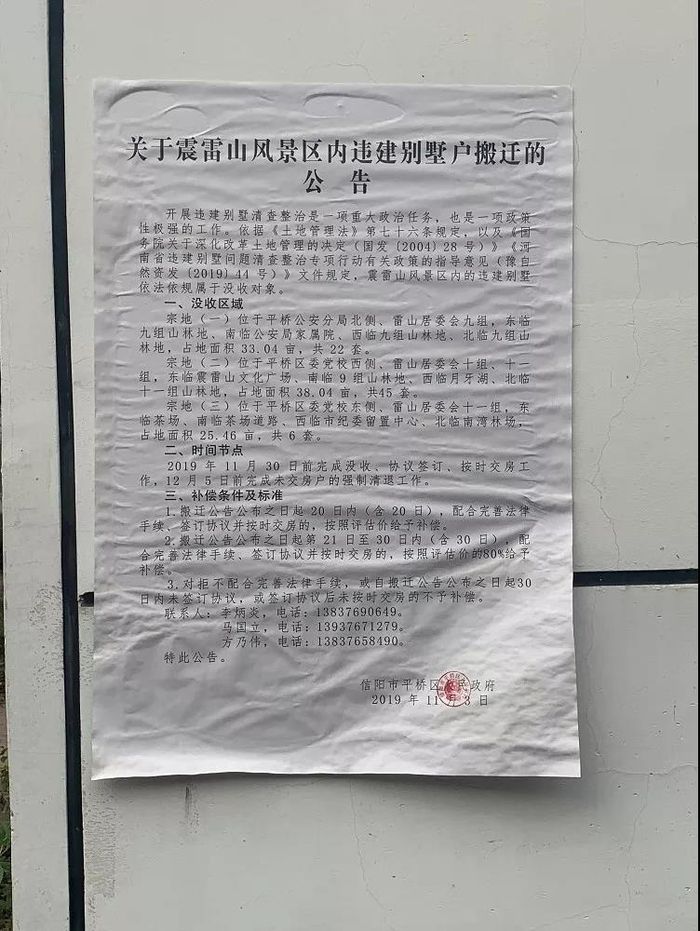 关于震雷山风景区内违建别墅户搬迁的
公 告
开展违建别墅清查整治是一项重大政治任务，也是一项政策
性极强的工作。依据《土地管理法》第七十六条规定，以及《国
务院关于深化改革土地管理的决定（国发（2004）28 号）》《河
南省违建别墅问题清查整治专项行动有关政策的指导意见（豫自
然资发（2019）44 号）》文件规定，震雷山风景区内的违建别墅
依法依规属于没收对象。
一、没收区域
宗地（一）位于平桥公安分局北侧、雷山居委会九组，东临
九组山林地、南临公安局家属院、西临九组山林地、北临九组山
林地，占地面积 33.04 亩，共 22 套。
宗地（二）位于平桥区委党校西侧、雷山居委会十组、十一
组，东临震雷山文化广场、南临 9 组山林地、西临月牙湖、北临
十一组山林地，占地面积 38.04 亩，共45 套。
宗地（三）位于平桥区委党校东侧、雷山居委会十一组，东
临茶场、南临茶场道路、西临市纪委留置中心、北临南湾林场，
占地面积 25.46 亩，共 6 套。
二、时间节点
2019 年 11 月 30 日前完成没收、协议签订、按时交房工
作，12 月 5 日前完成未交房户的强制清退工作。
三、补偿条件及标准
1.搬迁公告公布之日起 20 日内（含 20 日），配合完善法律
手续、签订协议并按时交房的，按照评估价给予补偿。
2.搬迁公告公布之日起第 21 日至 30 日内（含 30 日），配
合完善法律手续、签订协议并按时交房的，按照评估价的80%给予
补偿。
3.对拒不配合完善法律手续，或自搬迁公告公布之日起30
日内未签订协议，或签订协议后未按时交房的不予补偿。
联系人：李炳炎，电话：13837690649。
马国立，电话：13937671279。
方乃伟，电话：13837658490。
特此公告。
信阳市平桥区人民政府
2019 年 11 月 3 日